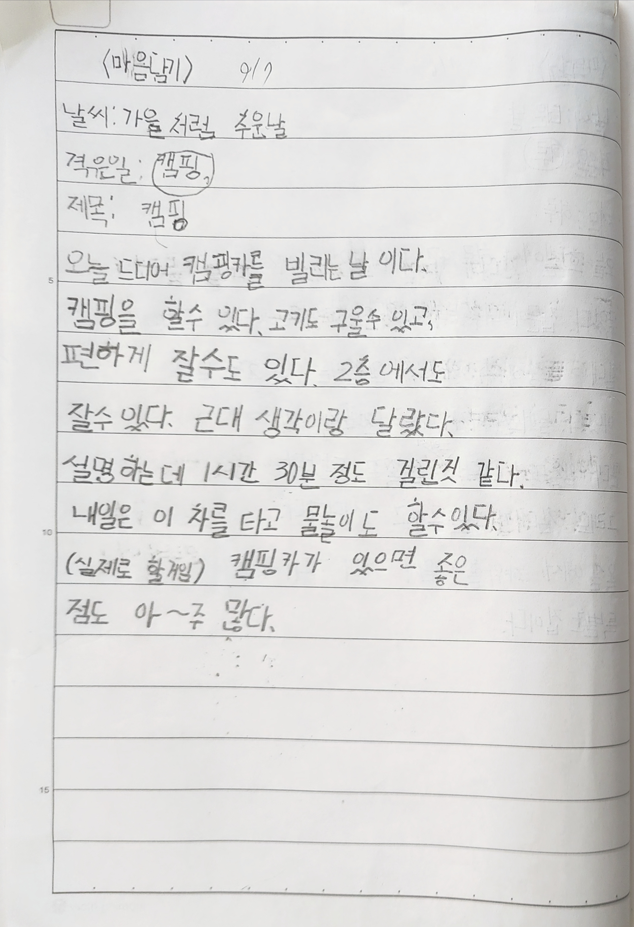 <마음담기> 9/7
날씨: 가을 처럼 추운날
겪유운일: 캠핑
제목: 캠핑
오늘 드디어 캠핑카를 빌리는 날 이다.
5
캠핑을 할수 있다. 고기도 구울수 있고,
편하게 잘수도 있다. 2층에서도
잘수 있다. 근대 생각이랑 달랐다.
설명하는데 1시간 30분 정도 걸린것 같다.
10
내일은 이 차를 타고 물놀이도 할수있다.
(실제로 할거임) 캠핑카가 있으면 좋은
점도 아~주 많다.
15